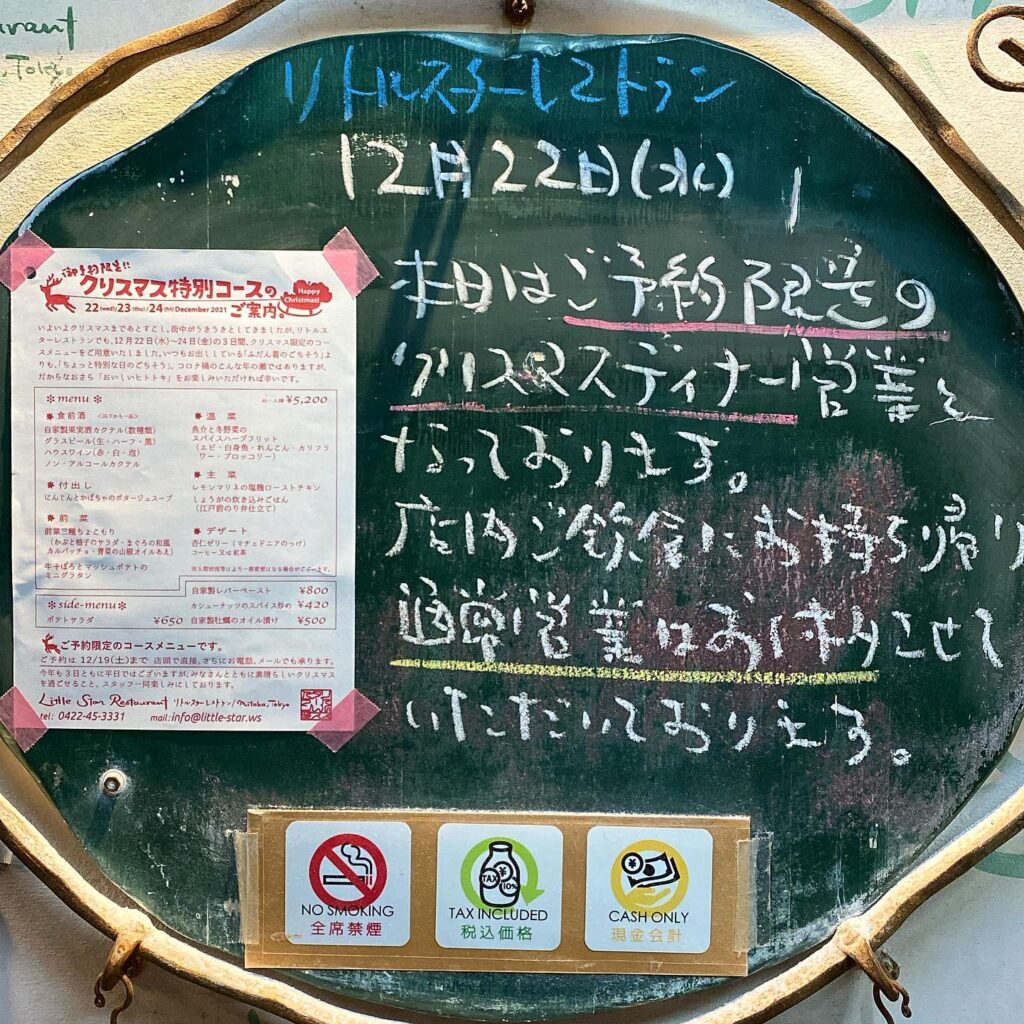 リトルスターレストラン
12月22日(水)
本日はご予約限定の
クリスマスディナー営業と
なっております。
店内ご飲食にお持ち帰り
通常営業はお休みさせて
いただいております。
御予約限定!!
クリスマス特別コースの
ご案内。
Happy
Christmas!
22(wed)/23(thu)/24(fri) December 2021
いよいよクリスマスまであとすこし。街中がうきうきとしてきましたが、リトルス
ターレストランでも、12月22日(水)〜24日(金)の3日間、クリスマス限定のコー
スメニューをご用意いたしました。いつもお出ししている「ふだん着のごちそう」より
も、「ちょっと特別な日のごちそう」。コロナ禍のこんな年の瀬ではありますが、
だからなおさら「おいしいヒトトキ」をお楽しみいただければ幸いです。
※menu※
お一人様¥5,200
食前酒 <以下から一品>
自家製果実酒カクテル(数種類)
グラスビール(生・ハーフ・黒)
ハウスワイン(赤・白・泡)
ノン・アルコールカクテル
付出し
にんじんとかぼちゃのポタージュスープ
前菜
前菜三種ちょこもり
(かぶと柚子のサラダ・まぐろの和風
カルパッチョ・青菜の山椒オイルあえ)
牛そぼろとマッシュポテトの
ミニグラタン
温菜
魚介と冬野菜の
スパイスハーブフリット
(エビ・白身魚・れんこん・カリフラ
ワー・ブロッコリー)
主菜
レモンマリネの塩麹ローストチキン
しょうがの炊き込みごはん
(江戸前のり弁仕立て)
デザート
杏仁ゼリー(マチェドニアのっけ)
コーヒー又は紅茶
※入荷状況等により一部変更になる場合がございます。
※side-menu※
ポテトサラダ ¥650
自家製レバーペースト ¥800
カシューナッツのスパイス炒め ¥420
自家製牡蠣のオイル漬け ¥500
ご予約限定のコースメニューです。
ご予約は 12/19(土)まで 店頭で直接、さらにお電話、メールでも承ります。
今年も3日ともに平日ではございますが、みなさんとともに素晴らしいクリスマス
を過ごせること、スタッフ一同楽しみにしております。
Little Star Restaurant リトルスターレストラン/Mitaka,Tokyo
tel: 0422-45-3331 mail:info@little-star.ws
NO SMOKING
全席禁煙
TAX
¥
10%
TAX INCLUDED
税込価格
¥
CASH ONLY
現金会計